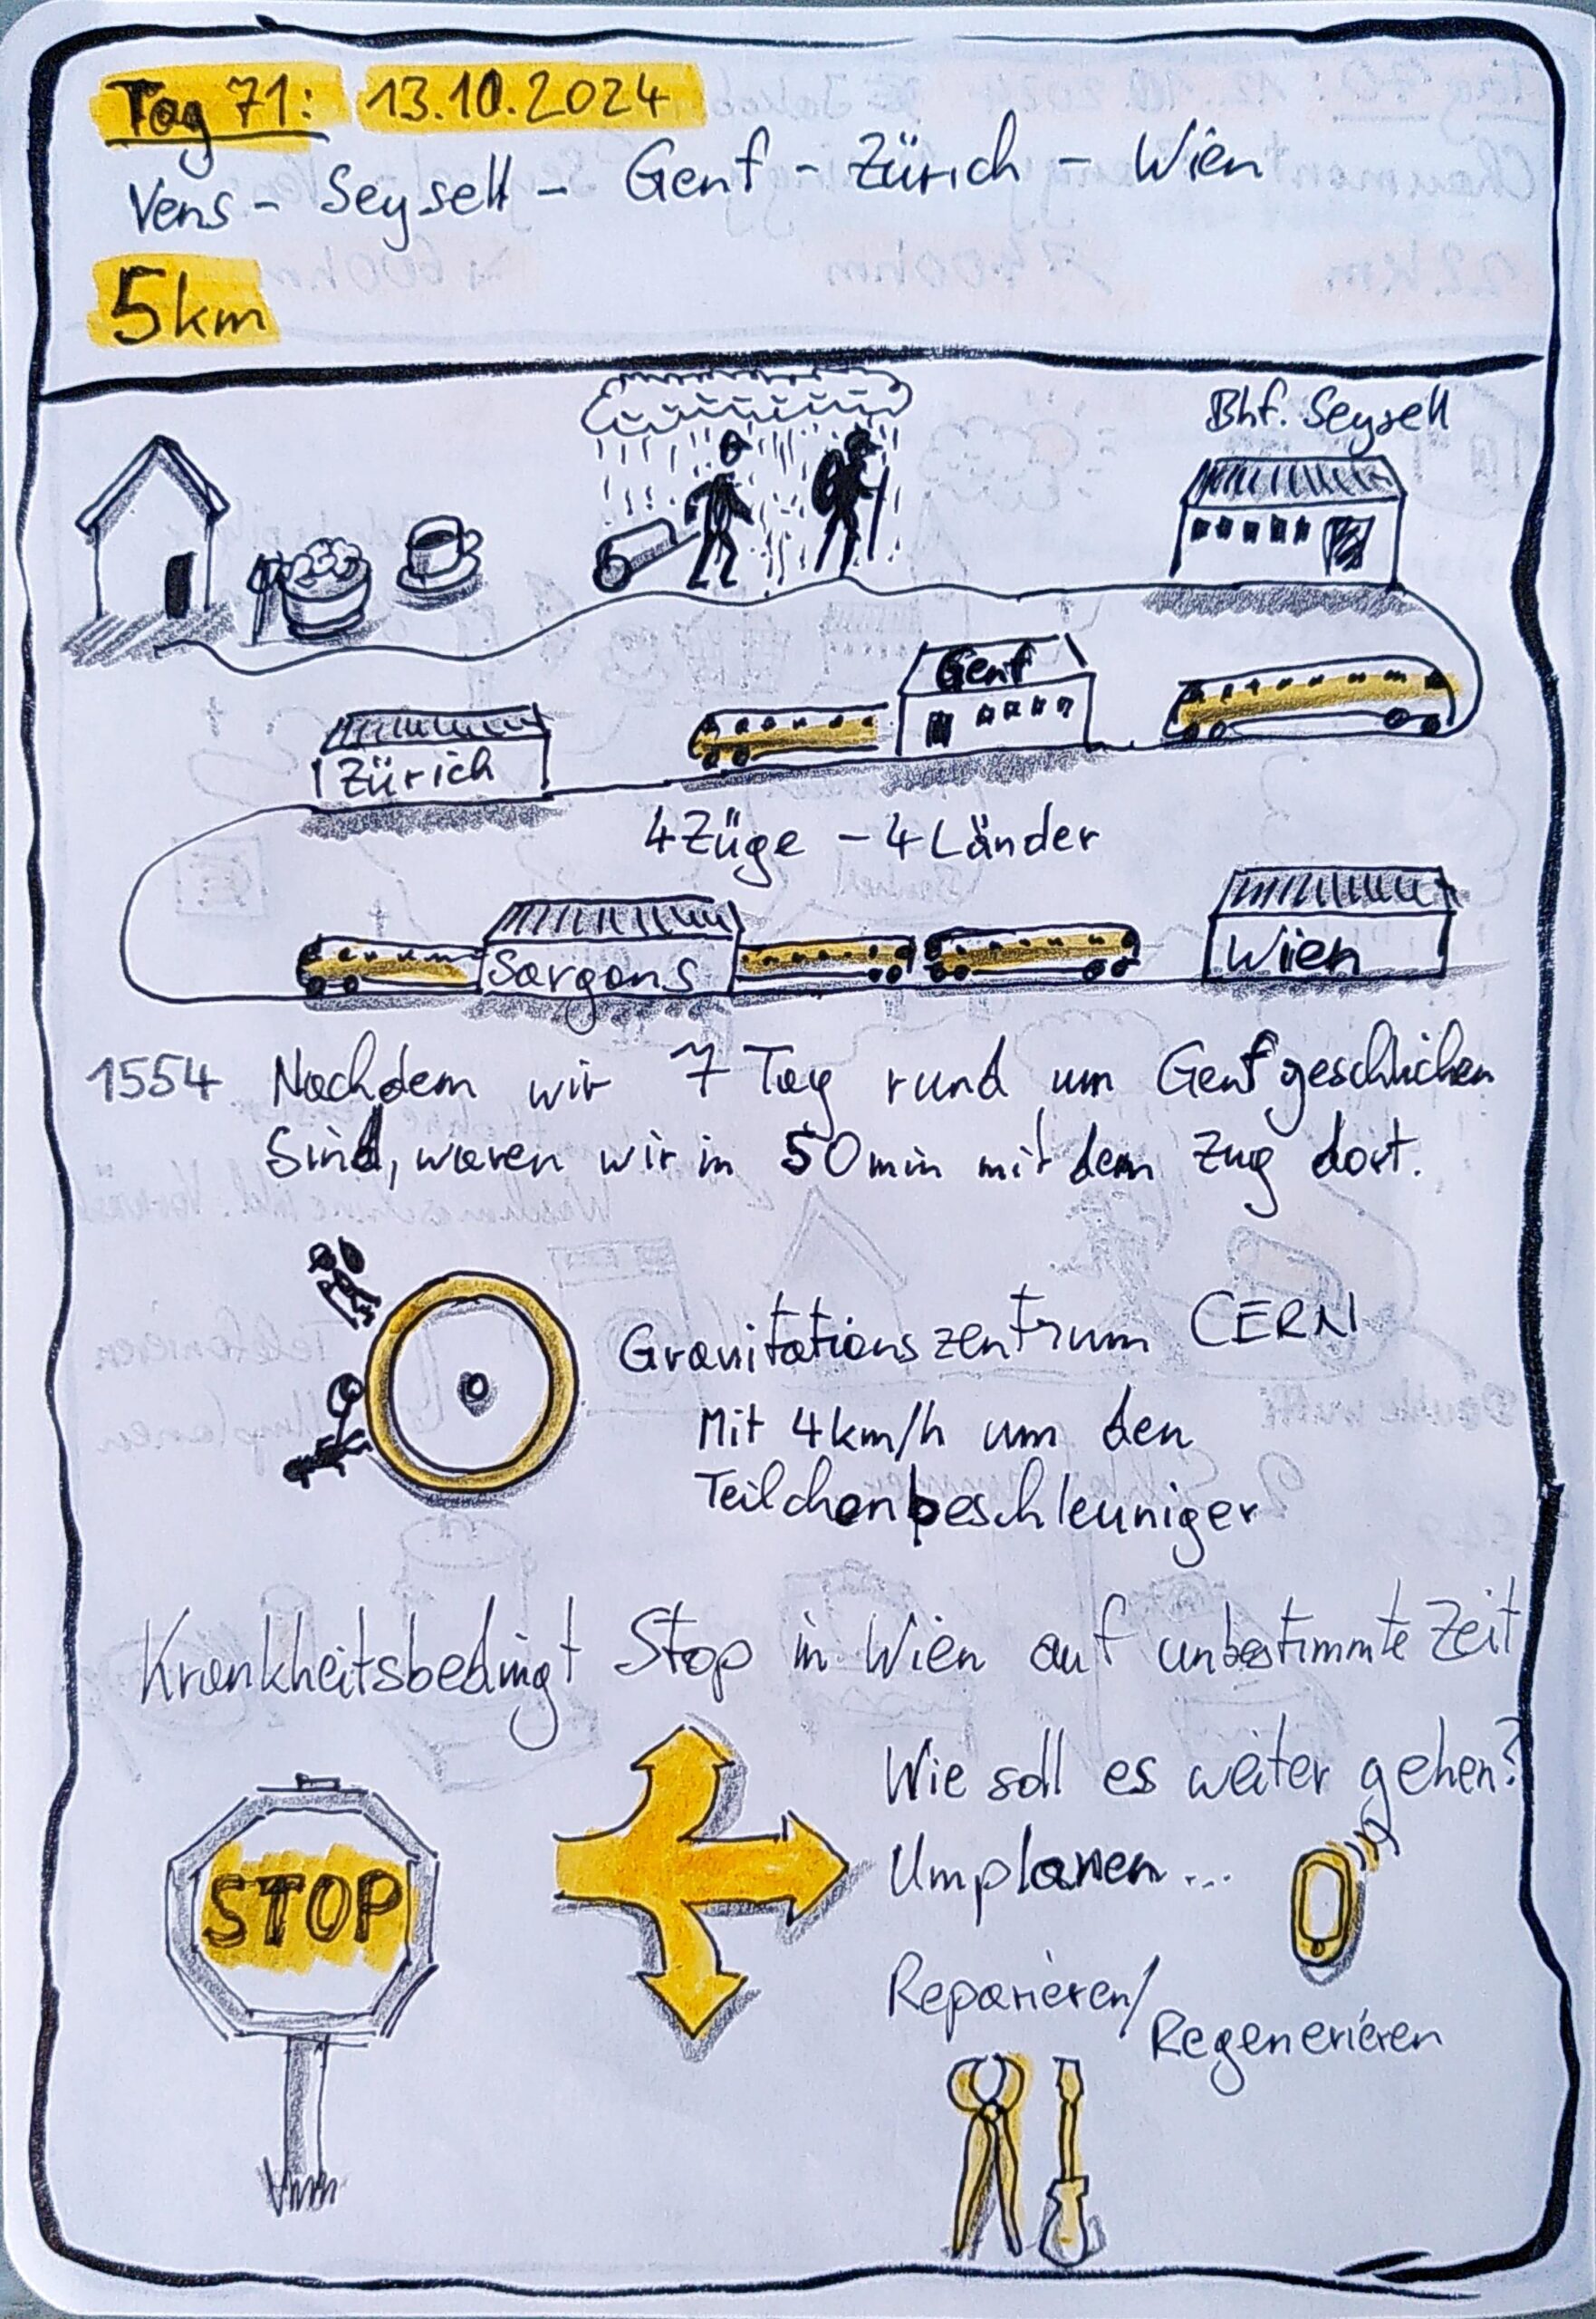 Tag 71: 13.10.2024
Vens - Seysell - Genf - Zürich - Wien
5km
Bhf. Seysell
Genf
Zürich
4 Züge - 4 Länder
Sargans
Wien
1554 Nachdem wir 7 Tag rund um Genf geschlichen
Sind, waren wir in 50min mit dem Zug dort.
Gravitationszentrum CERN
Mit 4km/h um den
Teilchenbeschleuniger
Krankheitsbedingt Stop in Wien auf unbestimmte Zeit
Wie soll es weiter gehen?
Umplanen...
STOP
Reparieren/
Regenerieren